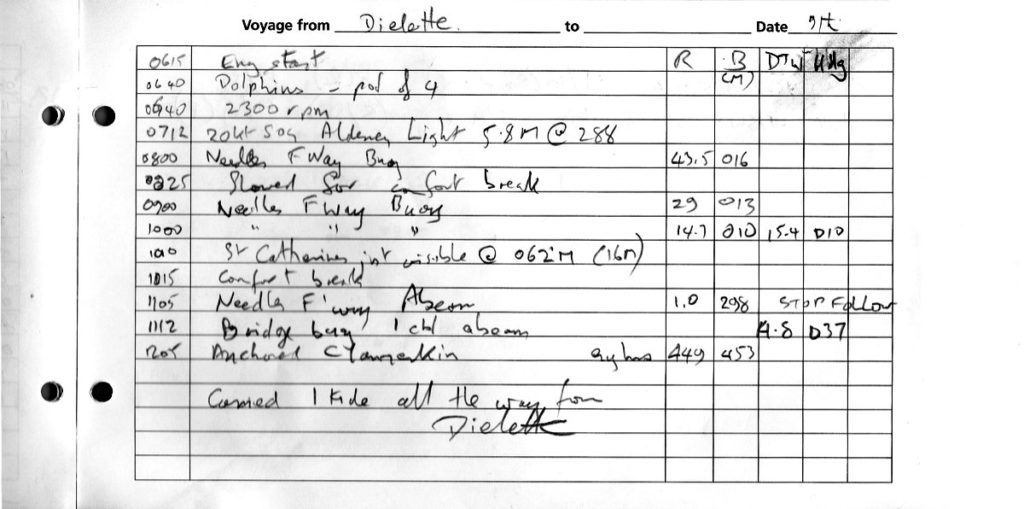 Voyage from Dielette to Date
0615 Eng start R B DTW Hdg
(M)
0640 Dolphins - pod of 4
0640 2300 rpm
0712 20kt SOG Alderney Light 5.8M @ 288
0800 Needles F Way Buoy 43.5 016
0825 Slowed for comfort break
0900 Needles F Way Buoy 29 013
1000 " " " 14.7 010 15.4 010
St Catherines jst visible @ 062°M (16M)
1015 Comfort break
1105 Needles F'way Abeam 1.0 298 STOP FOLLOW
1112 Bridge buoy 1 cbl abeam 4.8 037
1205 Anchored Clamerkin 449 453
Carried 1 tide all the way from
Dielette